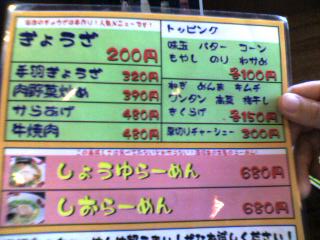 当店のぎょうざは手作り！人気No.1メニューです！
ぎょうざ
200円
手羽ぎょうざ 320円
肉野菜炒め 390円
からあげ 480円
牛焼肉 480円
トッピング
味玉 バター コーン
もやし のり わかめ
各100円
ねぎ めんま キムチ
ワンタン 高菜 梅干し
きくらげ 各150円
厚切りチャーシュー 300円
しょうゆらーめん 680円
しおらーめん 680円